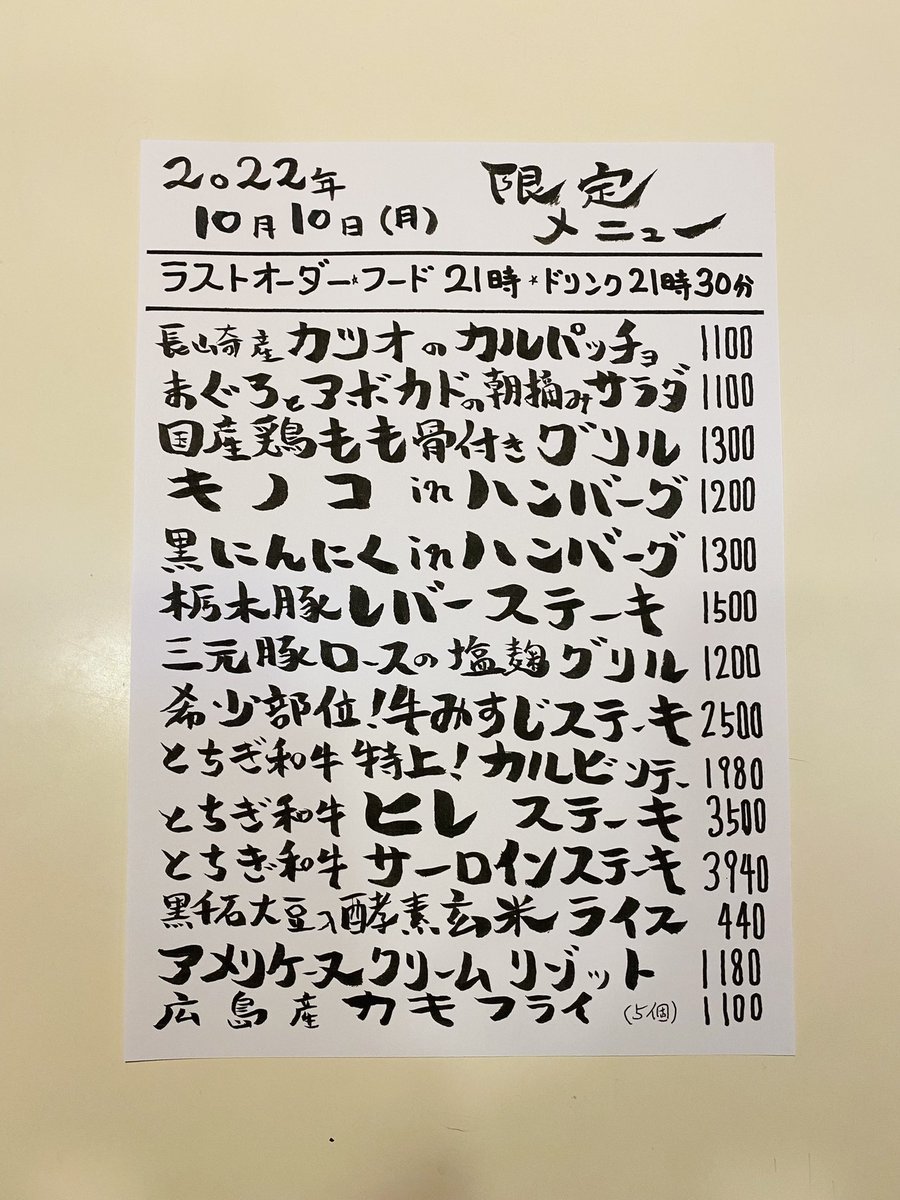 2022年
10月10日(月)
限定
メニュー
ラストオーダー*フード 21時*ドリンク21時30分
長崎産カツオのカルパッチョ 1100
まぐろとアボカドの朝摘みサラダ 1100
国産鶏もも骨付きグリル 1300
キノコinハンバーグ 1200
黒にんにくinハンバーグ 1300
栃木豚レバーステーキ 1500
三元豚ロースの塩麹グリル 1200
希少部位!牛みすじステーキ 2500
とちぎ和牛特上!カルビソテー 1980
とちぎ和牛ヒレステーキ 3500
とちぎ和牛サーロインステーキ 3940
黒千石大豆入酵素玄米ライス 440
アメリケーヌクリームリゾット 1180
広島産カキフライ(5個) 1100